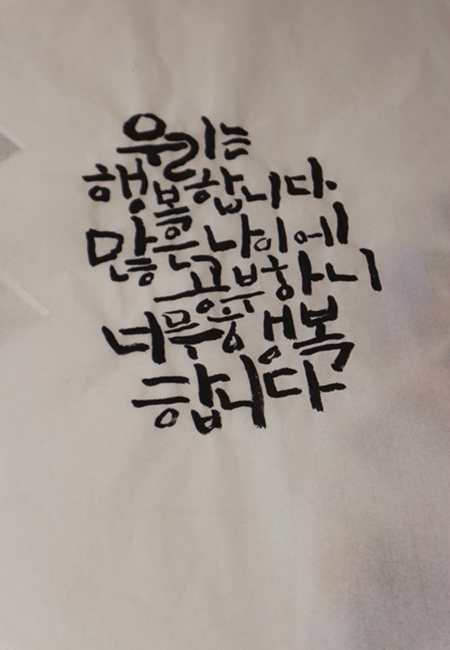 우리는
행복합니다.
많은 나이에
공부하니
너무 행복
합니다